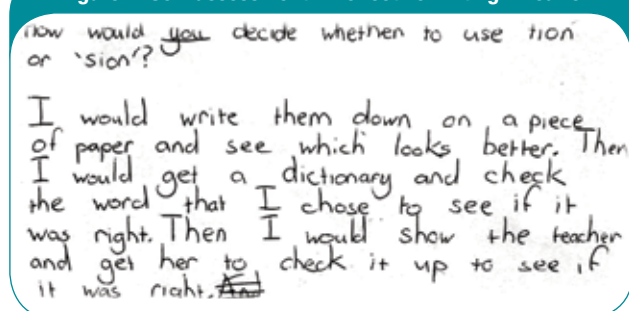 How would you decide whether to use tion
or 'sion'?
I would write them down on a piece
of paper and see which looks better. Then
I would get a dictionary and check
the word that I chose to see if it
was right. Then I would show the teacher
and get her to check it up to see if
it was right.